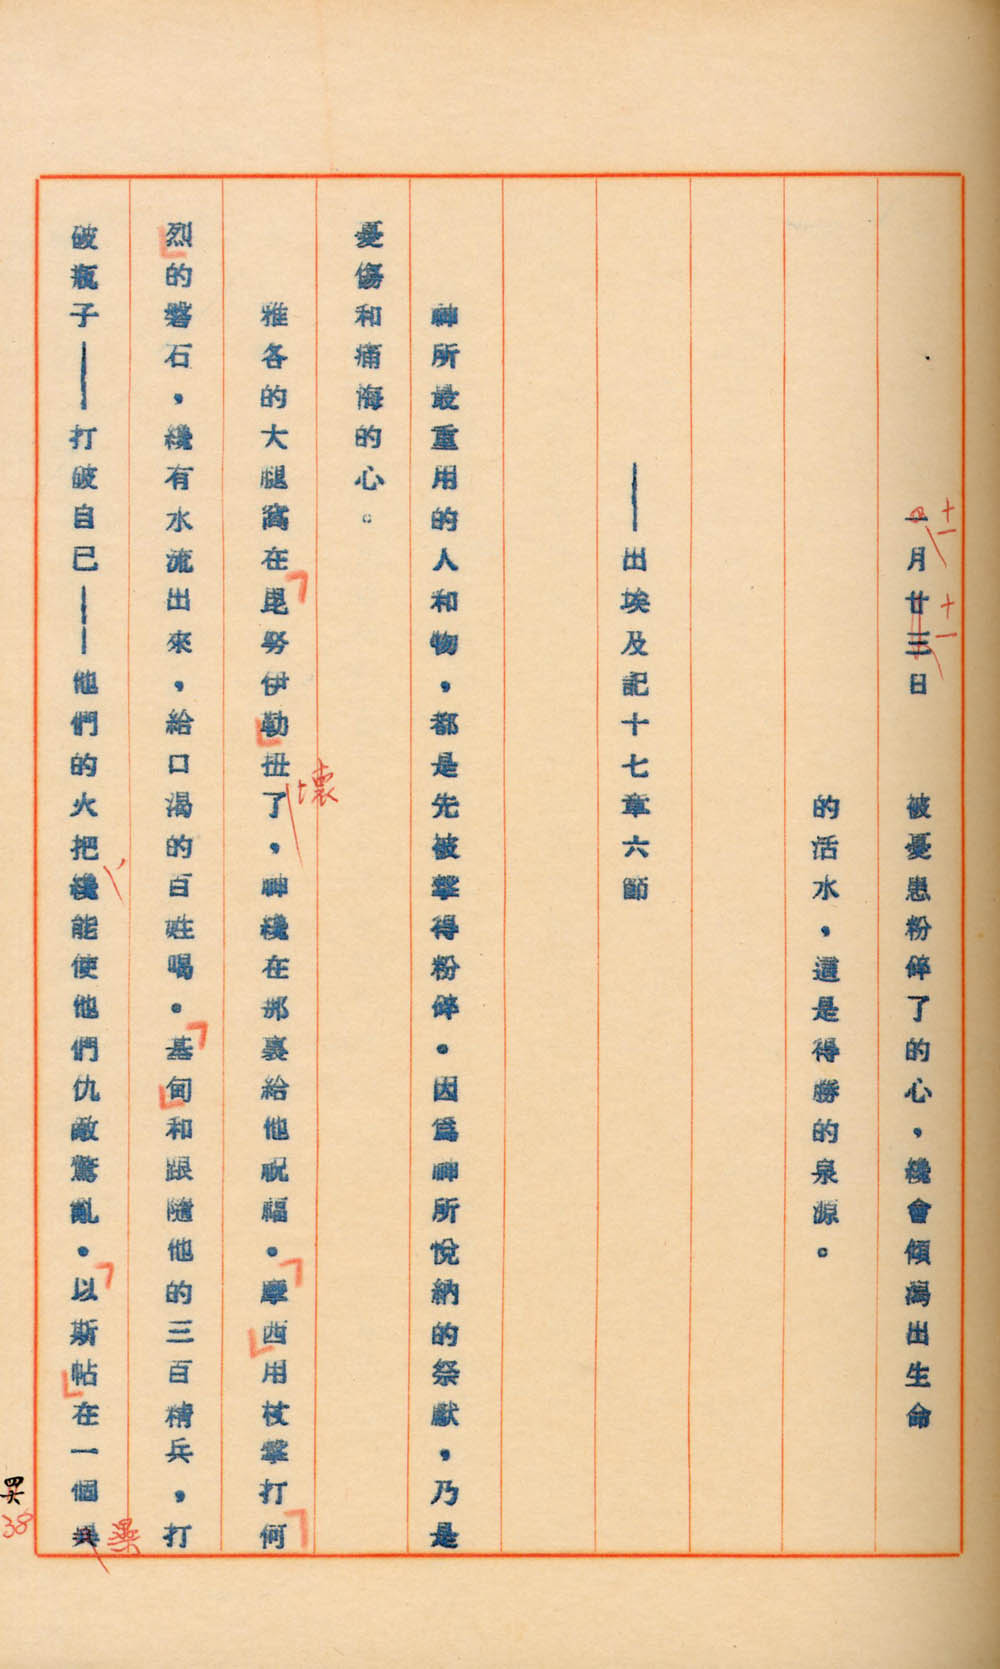 一月廿三日　被憂患粉碎了的心，纔會傾瀉出生命
十一
十一
的活水，這是得勝的泉源。
——出埃及記十七章六節
神所最重用的人和物，都是先被擊得粉碎。因爲神所悅納的祭獻，乃是
憂傷和痛悔的心。
雅各的大腿窩在「毘努伊勒」扭了，神纔在那裏給他祝福。「摩西」用杖擊打「何
壞
烈」的磐石，纔有水流出來，給口渴的百姓喝。「基甸」和跟隨他的三百精兵，打
破瓶子——打破自己——他們的火把纔能使他們仇敵驚亂。「以斯帖」在一個異
38